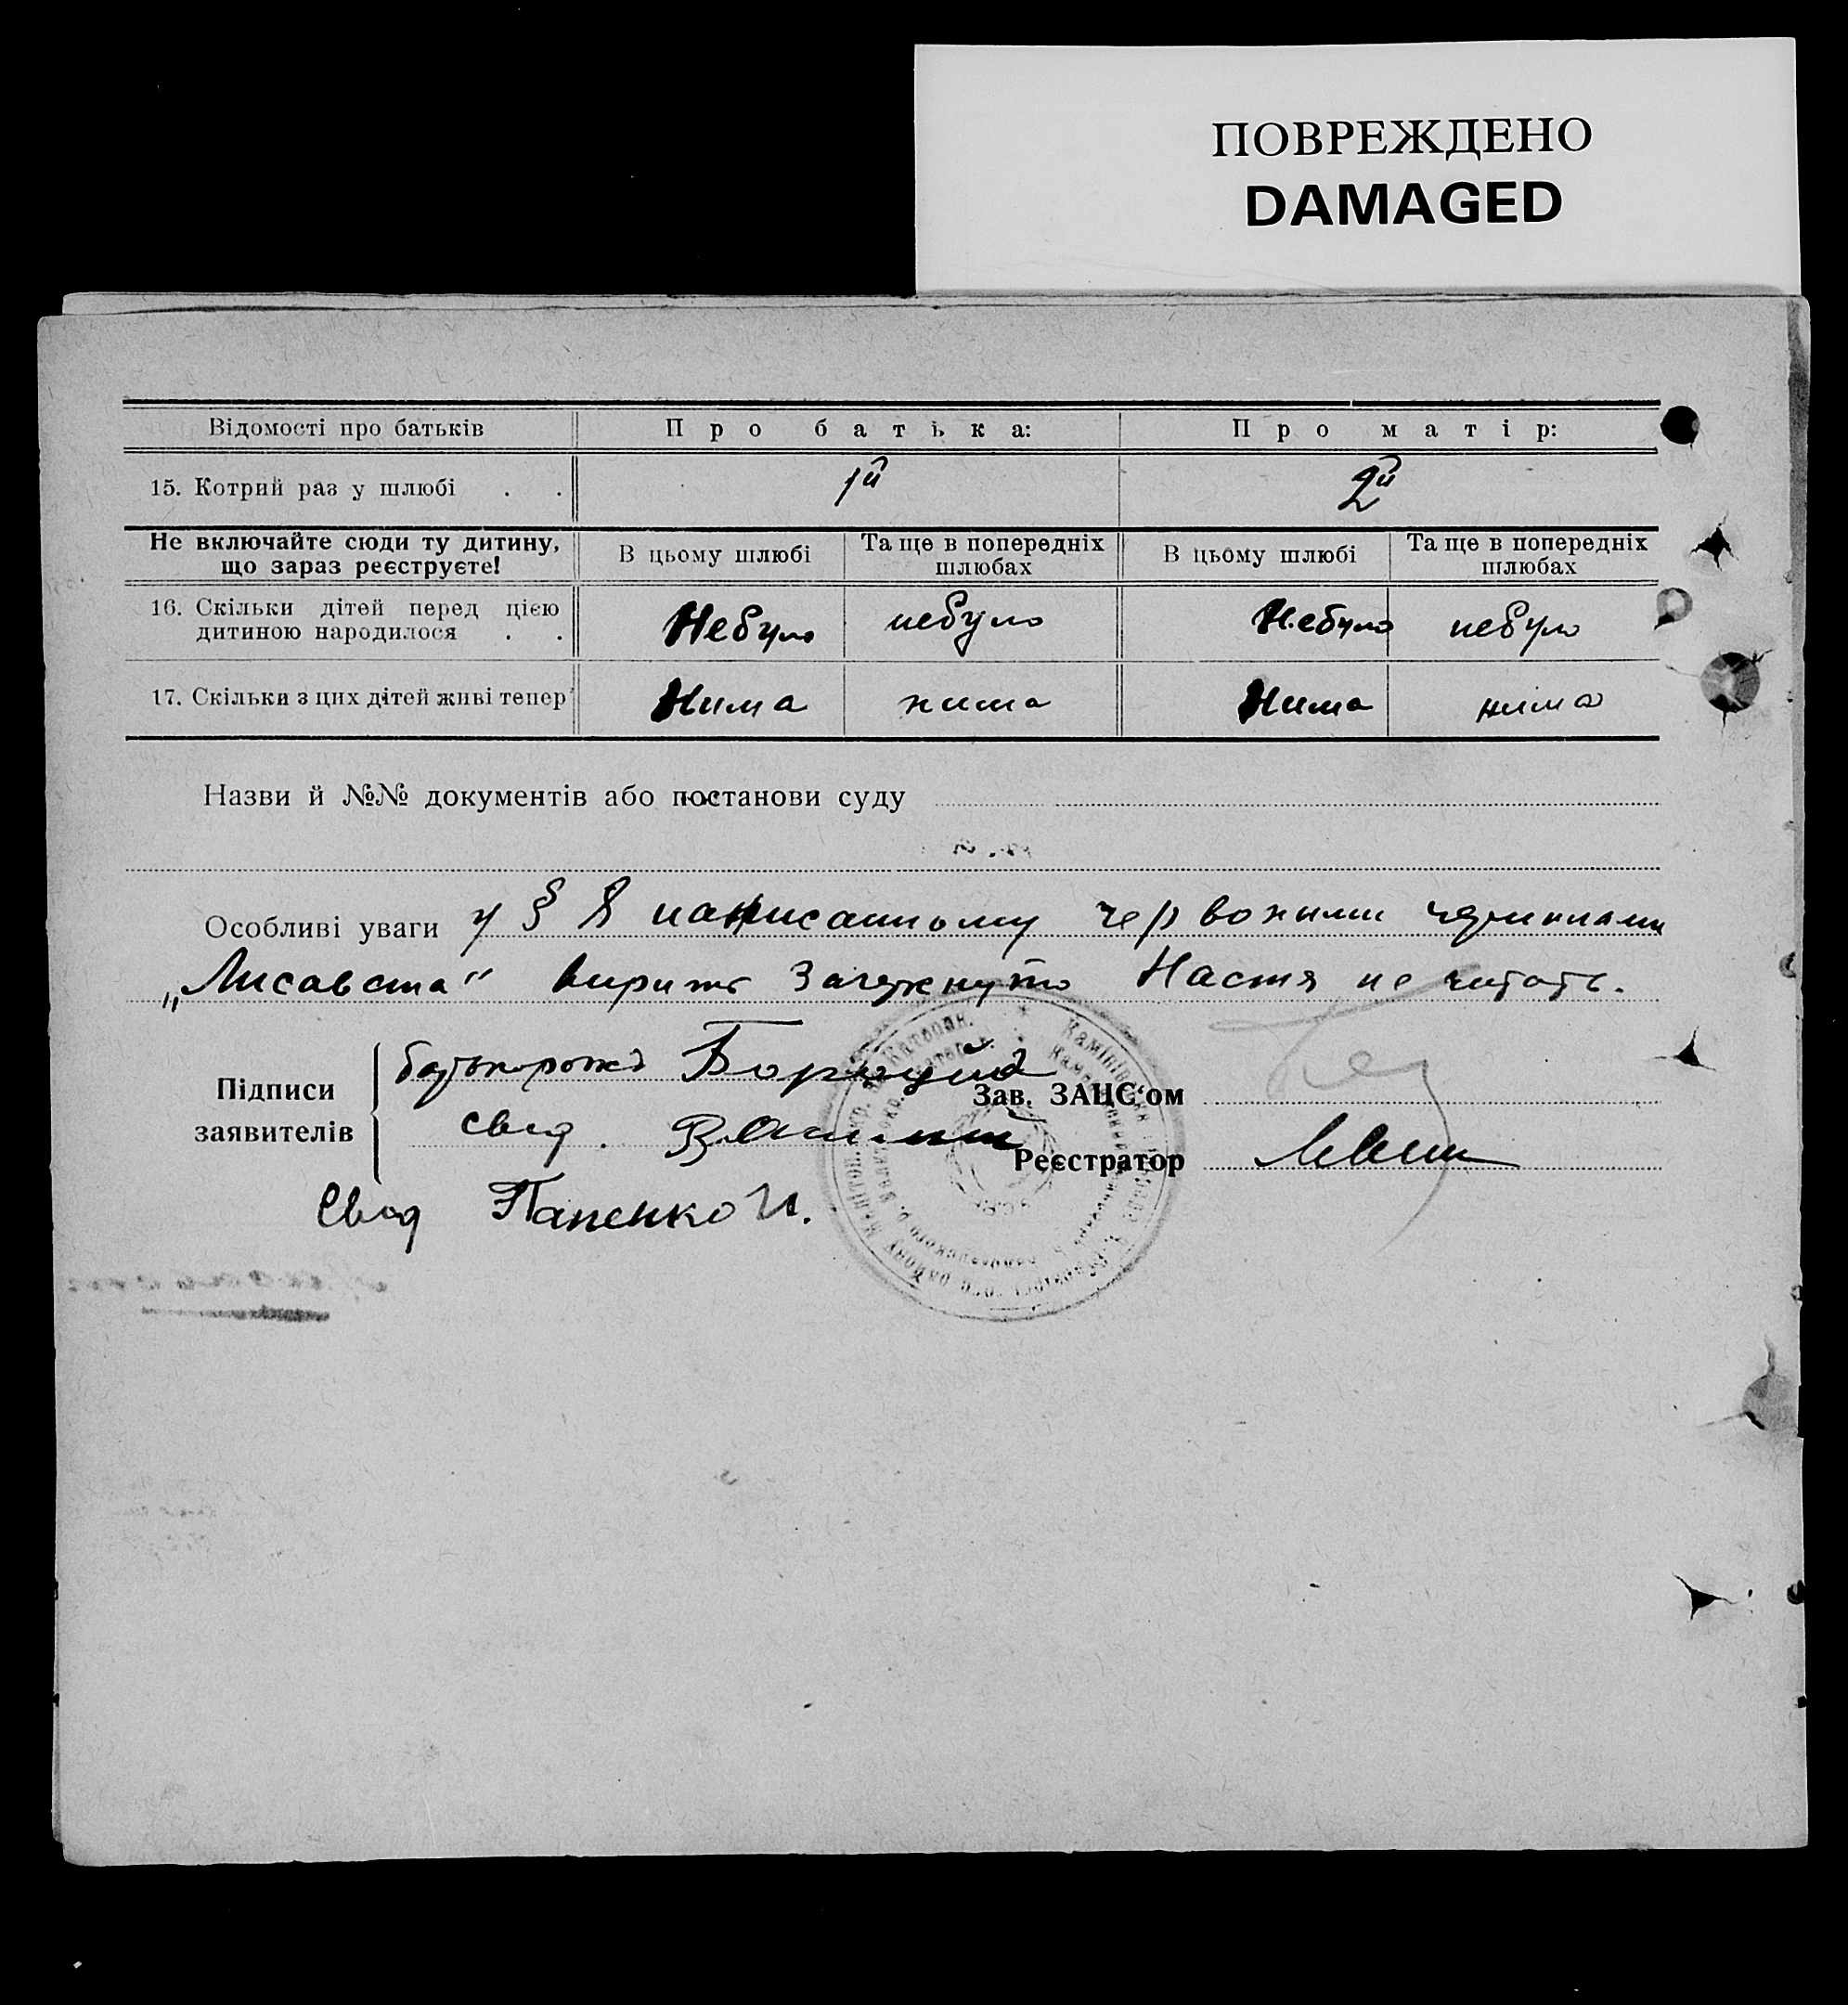 ПОВРЕЖДЕНО
DAMAGED
Відомості про батьків Про батька: Про матір:
15. Котрий раз у шлюбі . . 1й 2й
Не включайте сюди ту дитину, що зараз реєструєте! В цьому шлюбі Та ще в попередніх шлюбах В цьому шлюбі Та ще в попередніх шлюбах
16. Скільки дітей перед цією дитиною народилося . . Небуло небуло Небуло небуло
17. Скільки з цих дітей живі тепер Нима нима Нима нима
Назви й №№ документів або постанови суду
Особливі уваги у § 8 написанному червоними чернилами
„Лисавета" Зачеркнуто Настя не читать.
Підписи заявителів
Зав. ЗАЦС'ом
свид.
Реєстратор
Свид Папенко И.